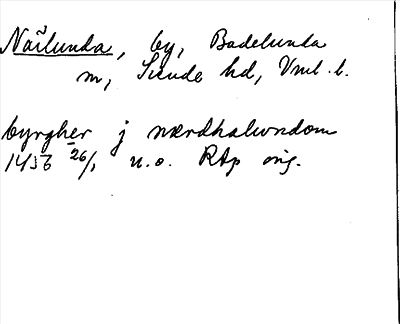 Närlunda, by, Badelunda
sn, Siende hd, Vml. l.
byrgher j nærdhalundom
1456 26/1 u.o. RAp orig.